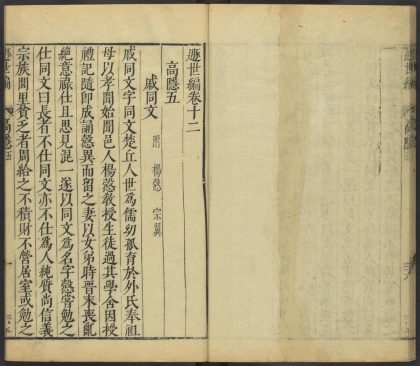 遯世編卷十二
高隱五
戚同文 附 楊慤 宗翼
戚同文字同文楚丘人世爲儒幼孤育於外氏奉祖
母以孝聞始聞邑人楊慤敎授生徒過其學舍因授
禮記隨卽成誦慤異而留之妻以女弟時晉末喪亂
絶意祿仕且思見混一遂以同文爲名字慤嘗勉之
仕同文曰長者不仕同文亦不仕爲人純質尚信義
宗族閭里貧乏者周給之不積財不營居室或勉之
遯世編
高隱五
一